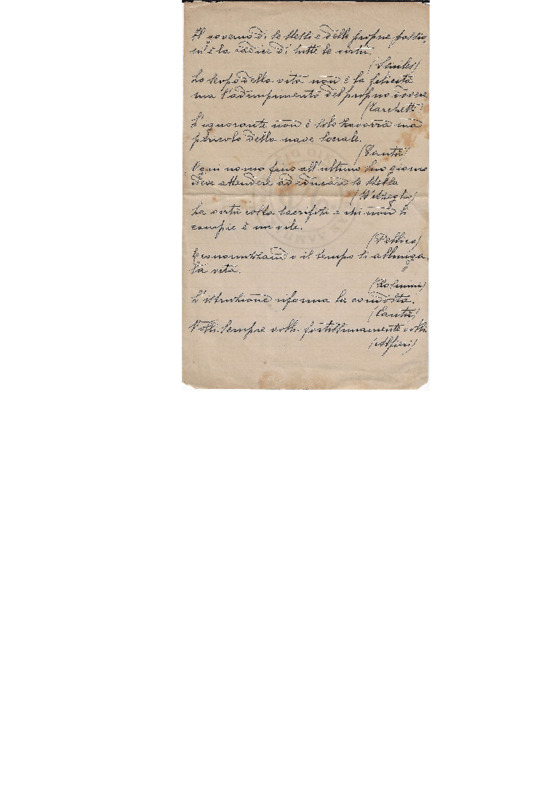 Il governo di se stesso e delle proprie passio
ni è la radice di tutte le virtù.
(Smiles)
Lo scopo della vita non è la felicità
ma l'adempimento del proprio dovere
L'ignorante non è solo zavorra ma
pericolo della nave sociale.
(Cantù)
Ogni uomo fino all'ultimo suo giorno
deve attendere ad educare se stesso
(D'Azeglio)
La virtù costa sacrifizi e chi non li
compie è un vile.
(Pellico)
Economizzando il tempo si allunga
la vita.
L'istruzione riforma la condotta.
(Cantù)
Volli, sempre volli, fortissimamente volli
(Alfieri)